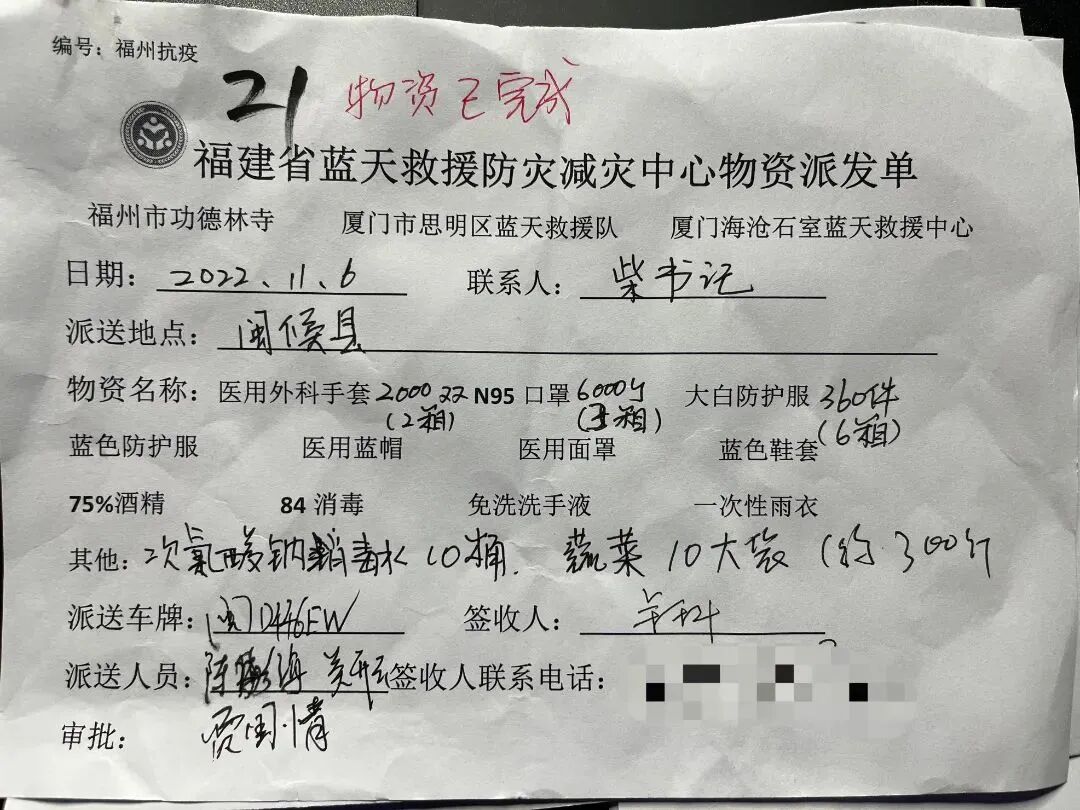 编号：福州抗疫
21 物资已完成
福建省蓝天救援防灾减灾中心物资派发单
福州市功德林寺 厦门市思明区蓝天救援队 厦门海沧石室蓝天救援中心
日期：2022、11、6 联系人：柴书记
派送地点：闽侯县
物资名称：医用外科手套2000双 N95 口罩6000个 大白防护服360件
(2箱) (箱) (6箱)
蓝色防护服 医用蓝帽 医用面罩 蓝色鞋套
75%酒精 84 消毒 免洗洗手液 一次性雨衣
其他：次氯酸钠消毒水10桶. 蔬菜10大袋(约300斤
派送车牌：闽D476EW 签收人：
派送人员：陈海 签收人联系电话：
审批：贾国情